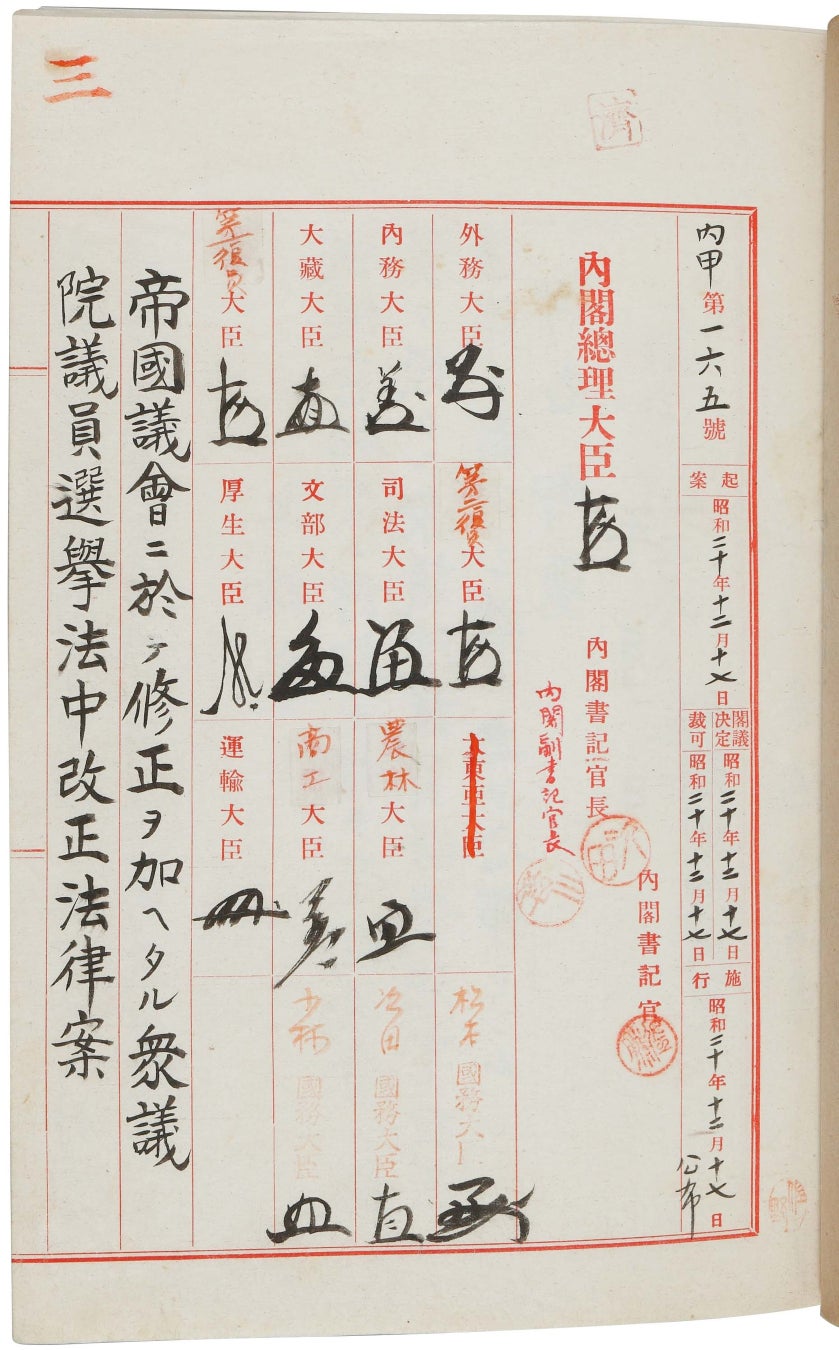 三
濟
内甲第一六五號
起案
昭和二十年十二月十七日
閣議決定
昭和二十年十二月十七日
裁可
昭和二十年十二月十七日
施行
昭和二十年十二月十七日
公布
內閣總理大臣
內閣書記官長
內閣書記官
内閣副書記官長
外務大臣
第二復員大臣
大東亞大臣
松本國務大臣
內務大臣
司法大臣
農林大臣
次田國務大臣
大藏大臣
文部大臣
商工大臣
小林國務大臣
第一復員大臣
厚生大臣
運輸大臣
帝國議會ニ於テ修正ヲ加ヘタル衆議
院議員選擧法中改正法律案